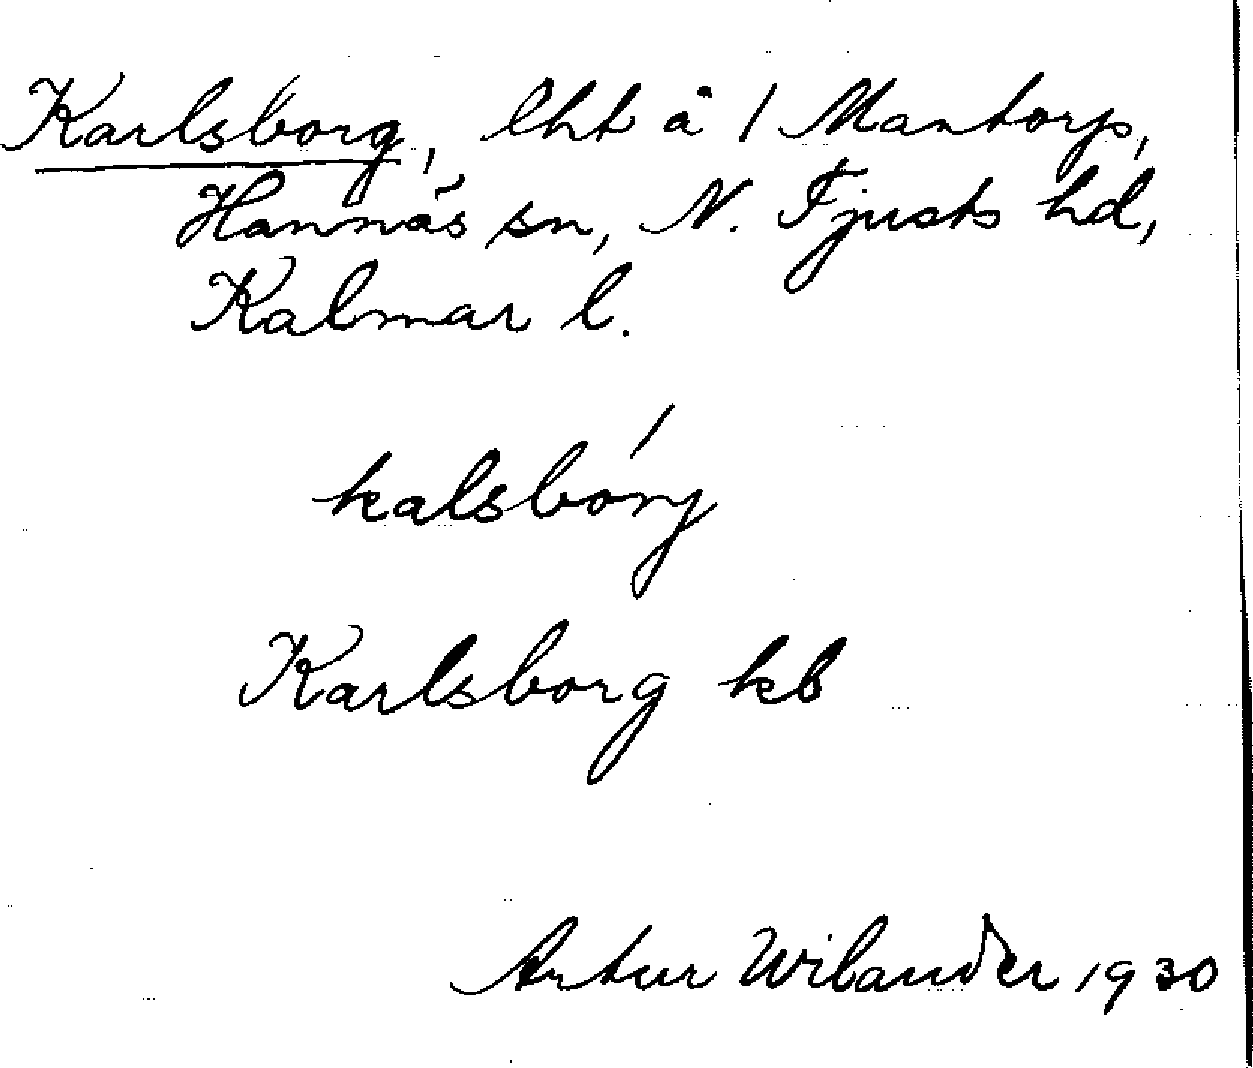 Karlsborg, lht å 1 Mantorp,
Hannäs sn, N. Tjusts hd,
Kalmar l.
kalsbórj
Karlsborg kb
Artur Wilander 1930